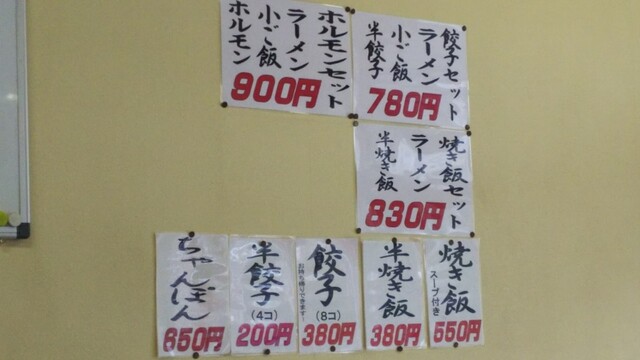 ホルモンセット
ラーメン
小ご飯
ホルモン
900円
餃子セット
ラーメン
小ご飯
半餃子
780円
焼き飯セット
ラーメン
半焼き飯
830円
焼き飯
スープ付き
550円
半焼き飯
380円
餃子
(8コ)
お持ち帰りできます!
380円
半餃子
(4コ)
200円
ちゃんぽん
650円